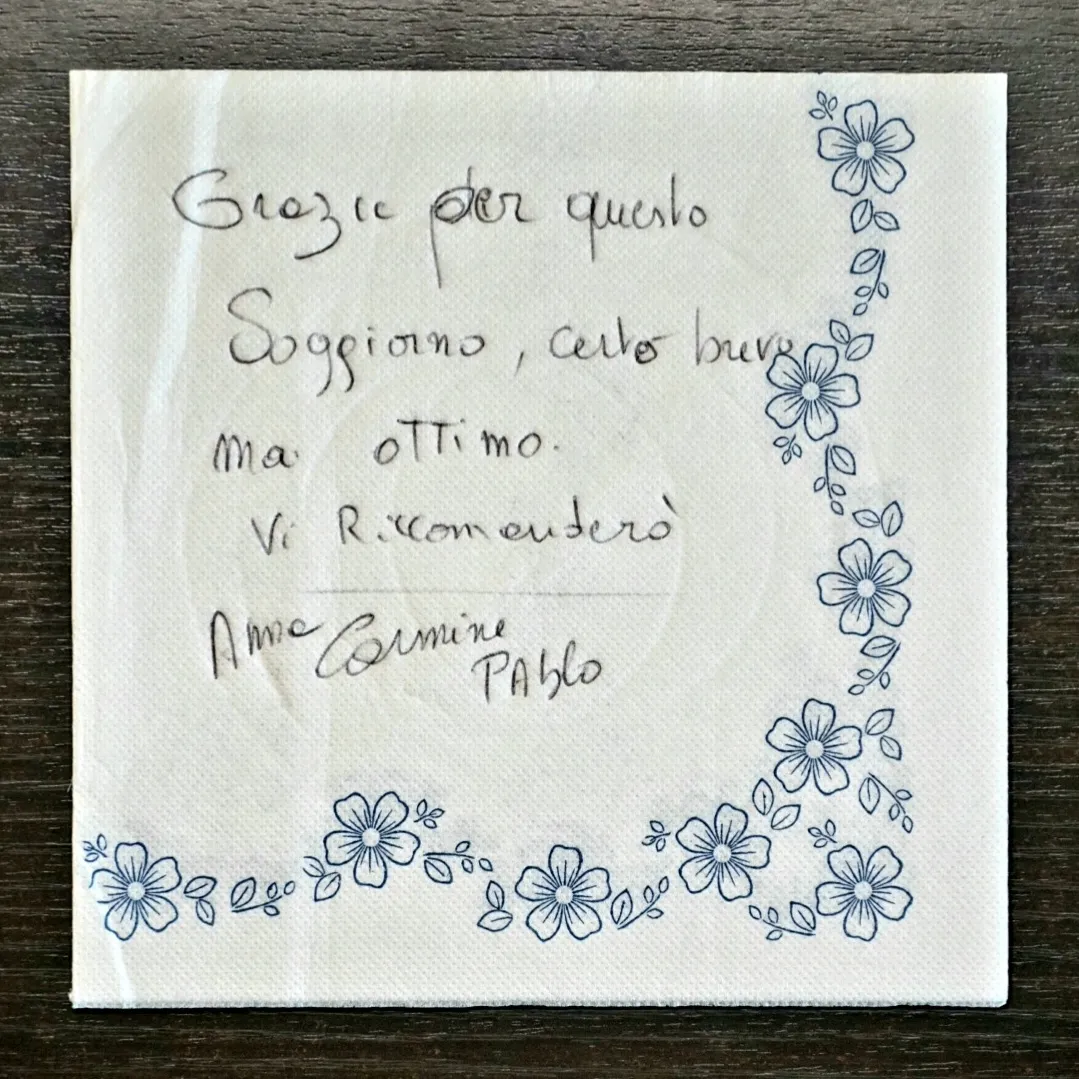 Grazie per questo
Soggiorno, certo breve
ma ottimo.
Vi Riccomanderò
Anna Carmine
PAblo